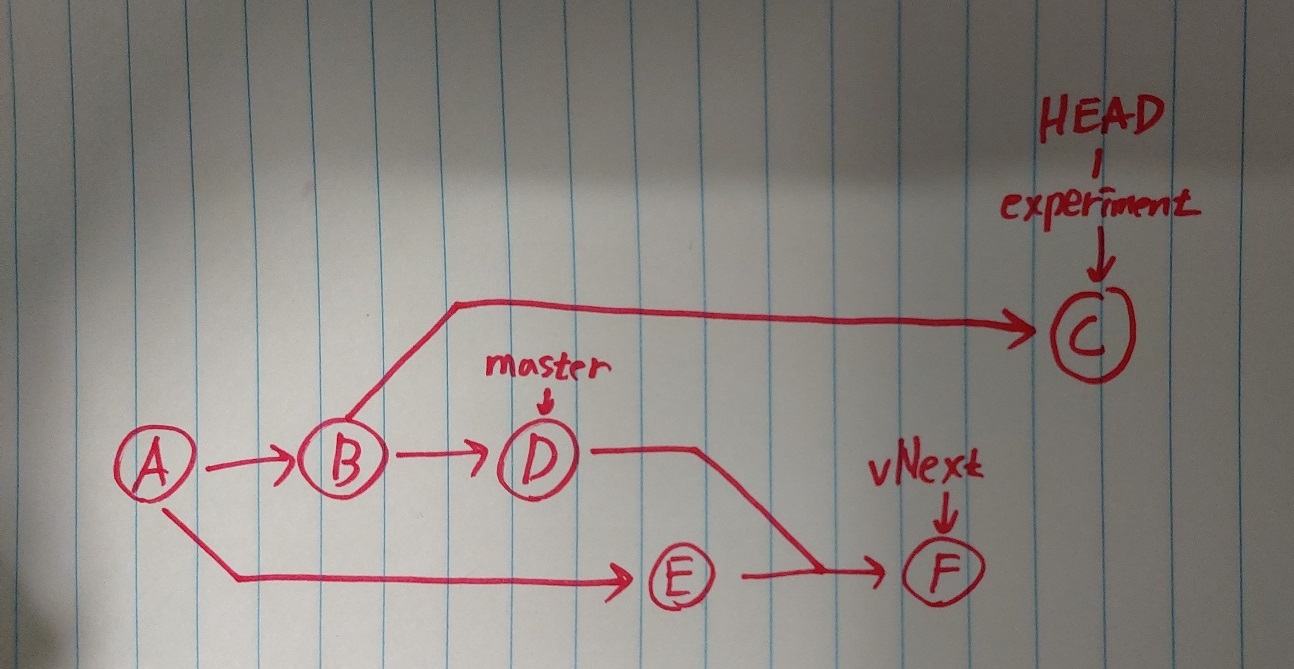 HEAD
experiment
C
master
A
B
D
vNext
E
F